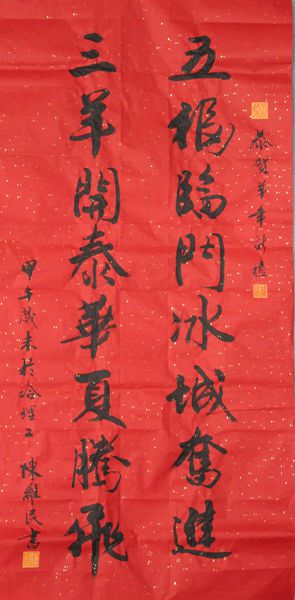 恭賀羊年新禧
五福臨門冰城奮進
三羊開泰華夏騰飛
甲午歲末於哈理工 陳維民書